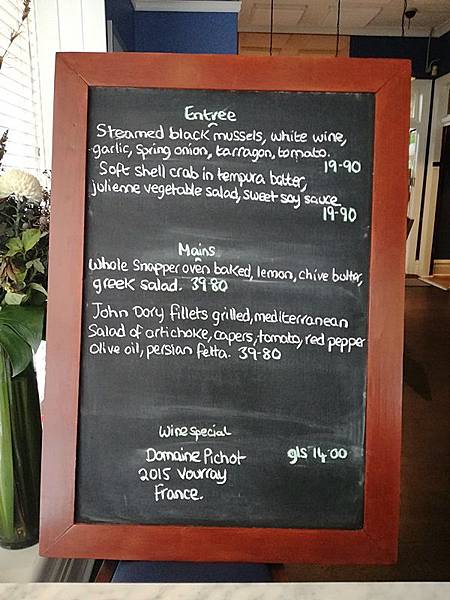 Entree
Steamed black mussels, white wine,
garlic, spring onion, tarragon, tomato.
19-90
Soft shell crab in tempura batter,
julienne vegetable salad, sweet soy sauce
19-90
Mains
Whole Snapper oven baked, lemon, chive butter,
greek salad. 39-80
John Dory fillets grilled, mediterranean
Salad of artichoke, capers, tomato, red pepper
olive oil, persian fetta. 39-80
Wine special
Domaine Pichot gls 14-00
2015 Vouvray
France.